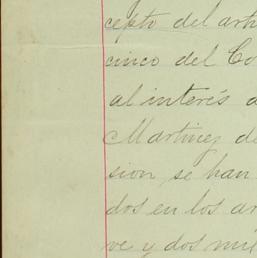 cepto del artí
cinco del Có
al interés d
Martinez de
sion, se han
dos en los ar
ve y dos mil